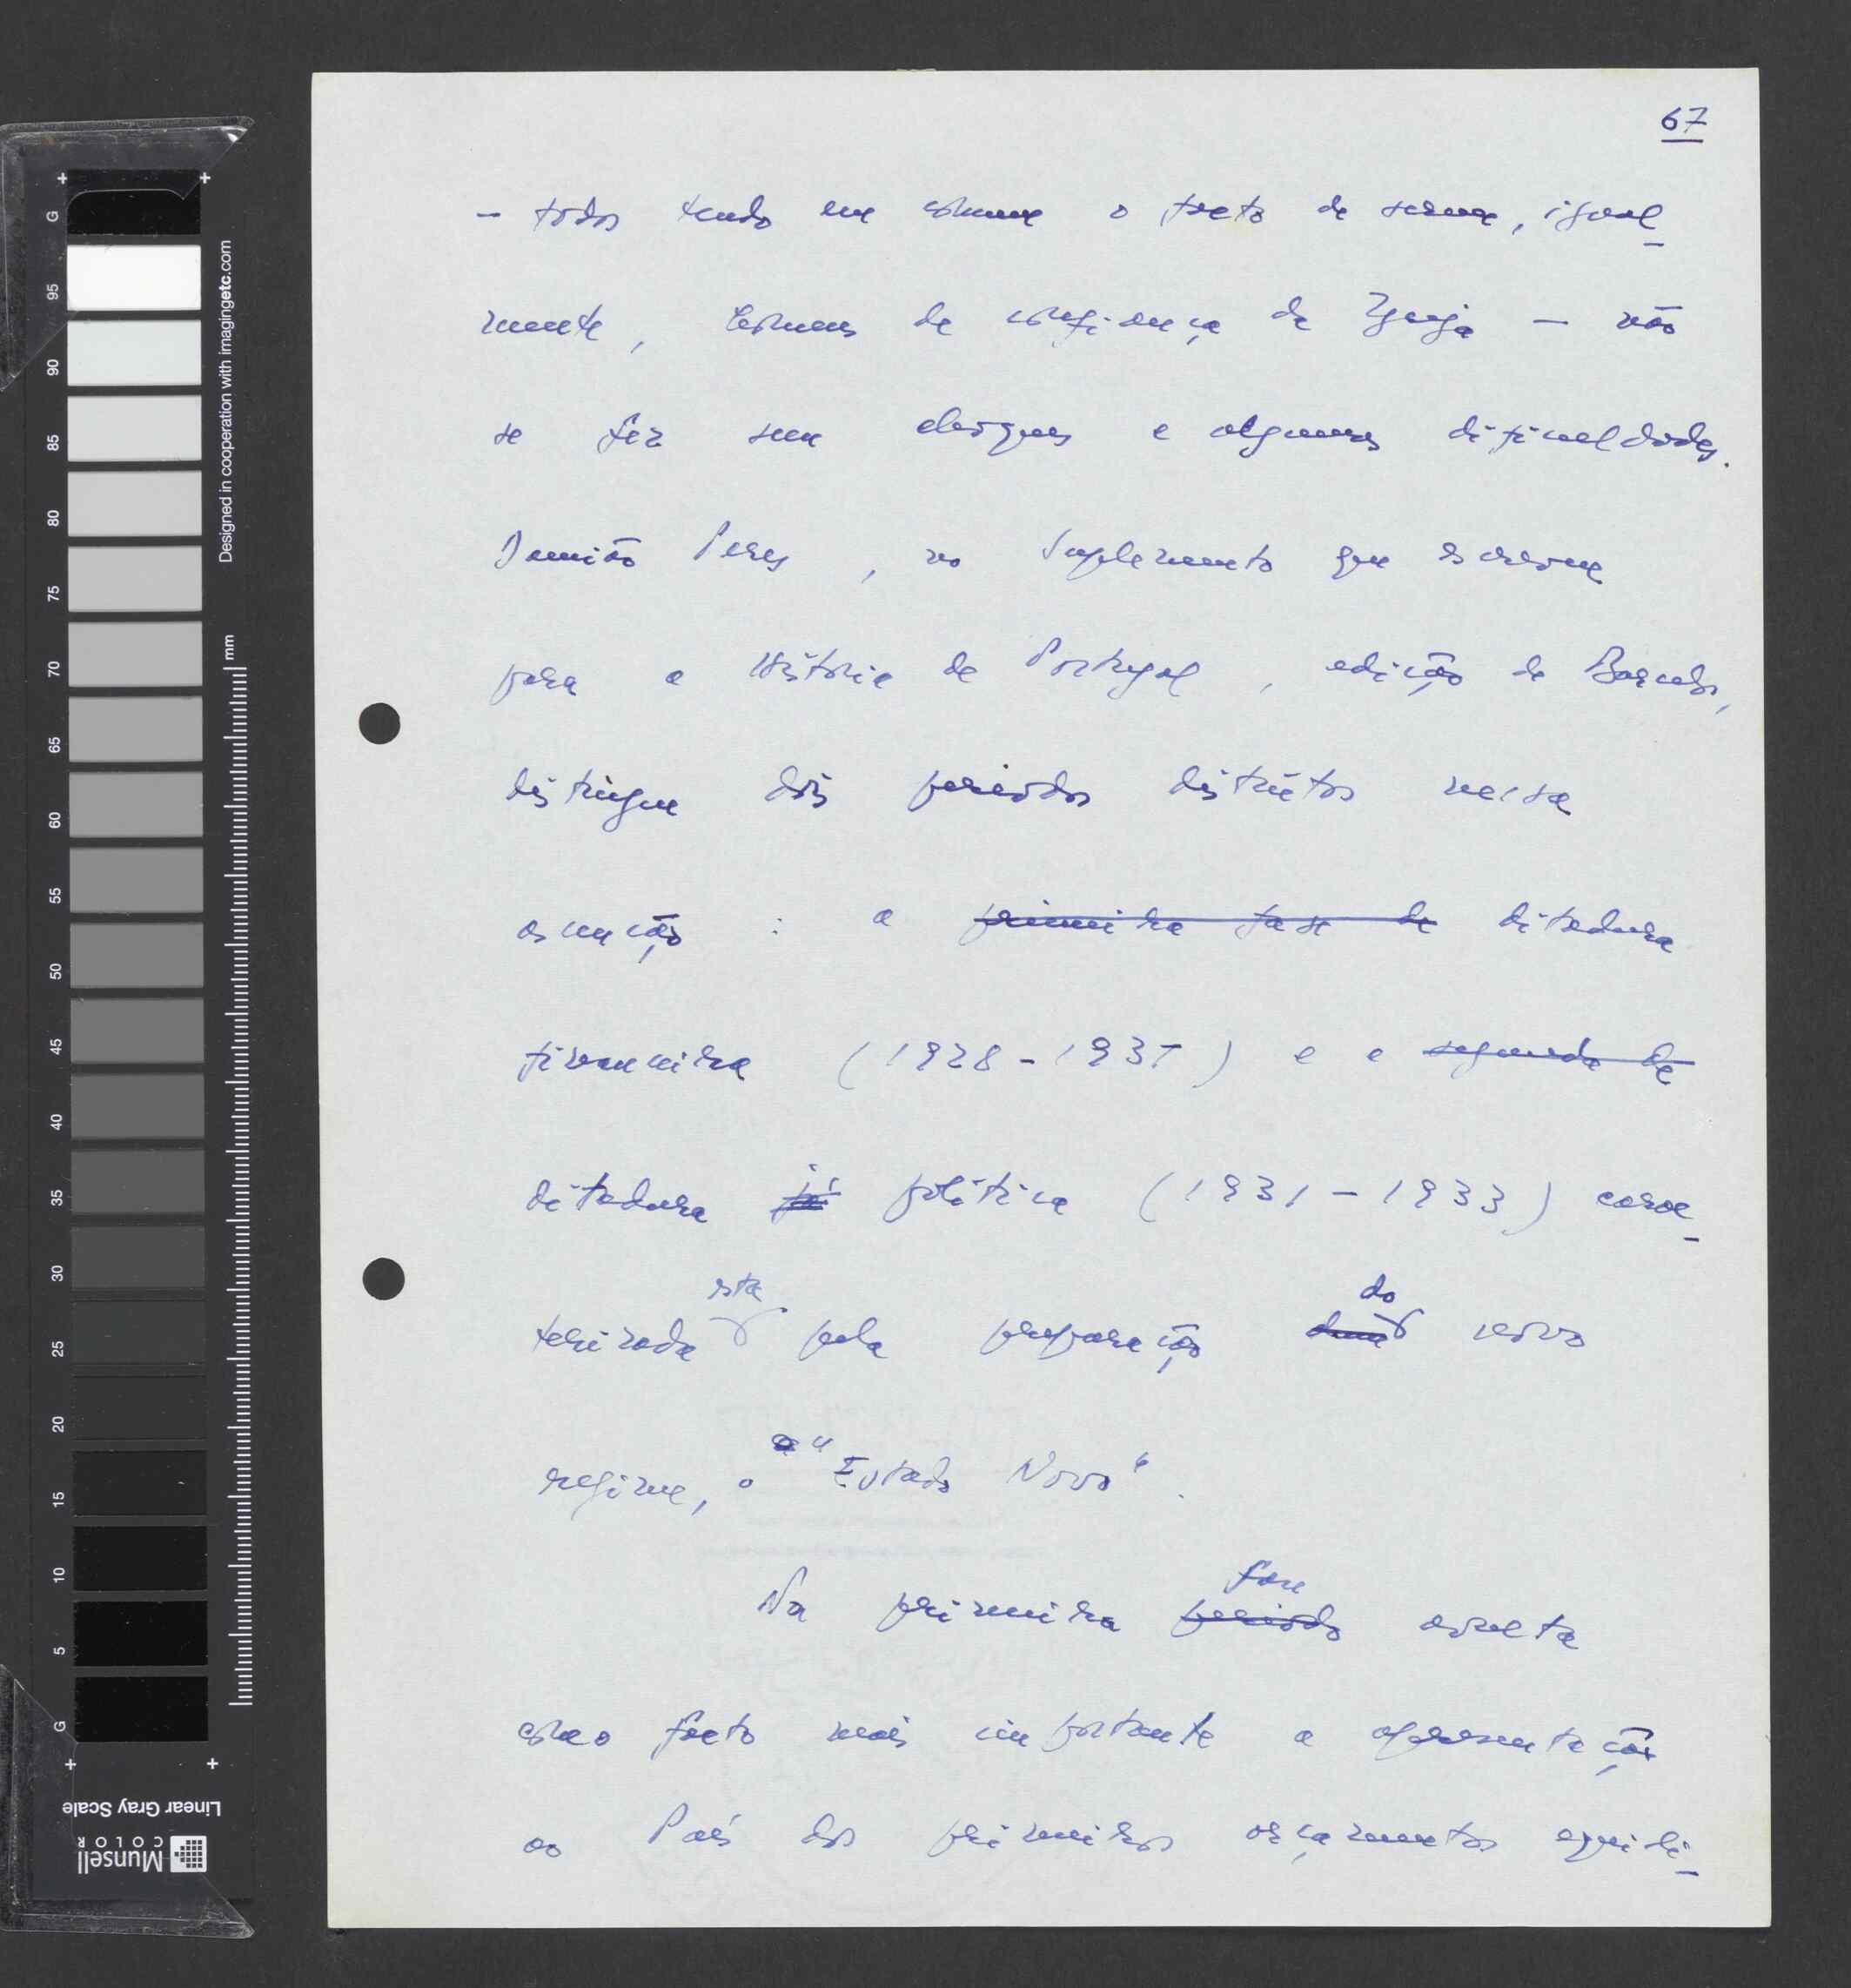 67
- todos tendo em comum o facto de serem, igual_
mente, homens de confiança da Igreja — não
se fez sem choques e algumas dificuldades.
Damião Peres, no Suplemento que escreveu
para a História de Portugal, edição de Barcelos,
distingue dois períodos distintos nessa
ascenção : a primeira fase da ditadura
financeira (1928-1931) e a segunda da
ditadura já política (1931-1933) carac_
terizada esta pela preparação duma do novo
regime, o "Estado Novo".
Na primeira período fase avulta
como facto mais importante a apresentação
ao País dos primeiros orçamentos equili_
G
95
90
85
80
75
70
65
60
55
50
45
40
35
30
25
20
15
10
5
G
mm
Designed in cooperation with imagingetc.com
Linear Gray Scale
Munsell
COLOR